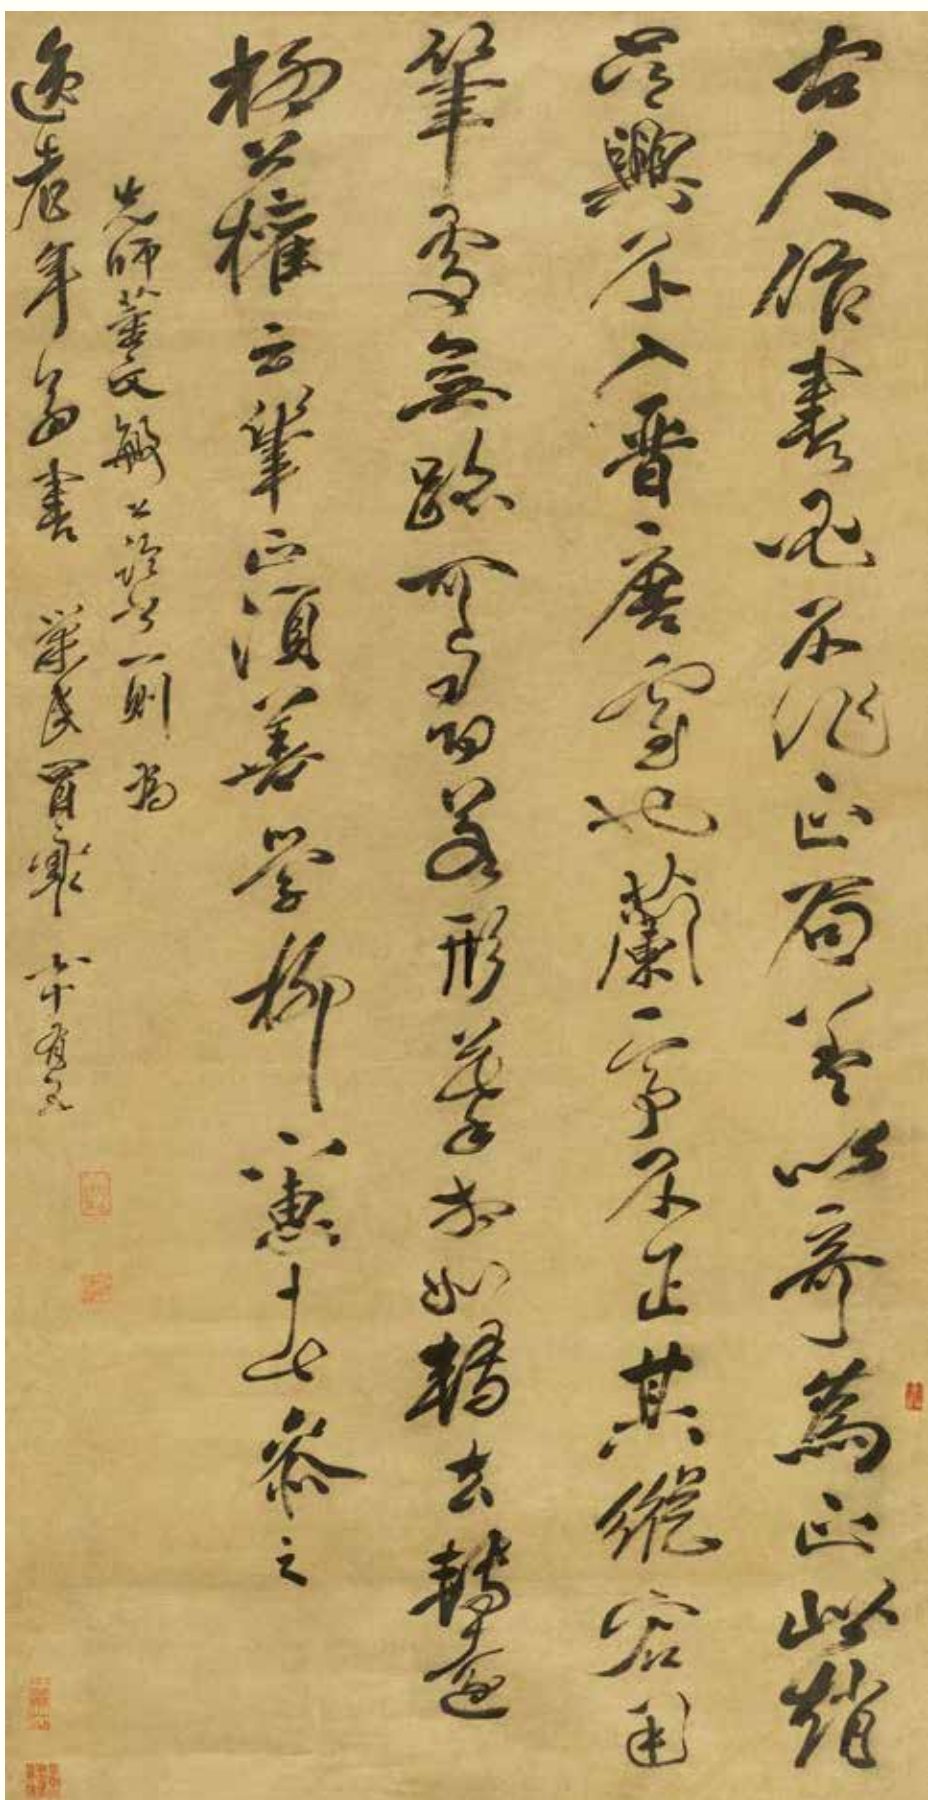 古人作書必不作正局蓋以奇為正此趙
吳興不入晉唐室也蘭亭不正其縱宕用
筆處無跡可尋若形摹相似轉去轉遠
柳公權云筆正須善學柳下惠者參之
先師董文敏公論書一則為
逸老年翁書 六十有五